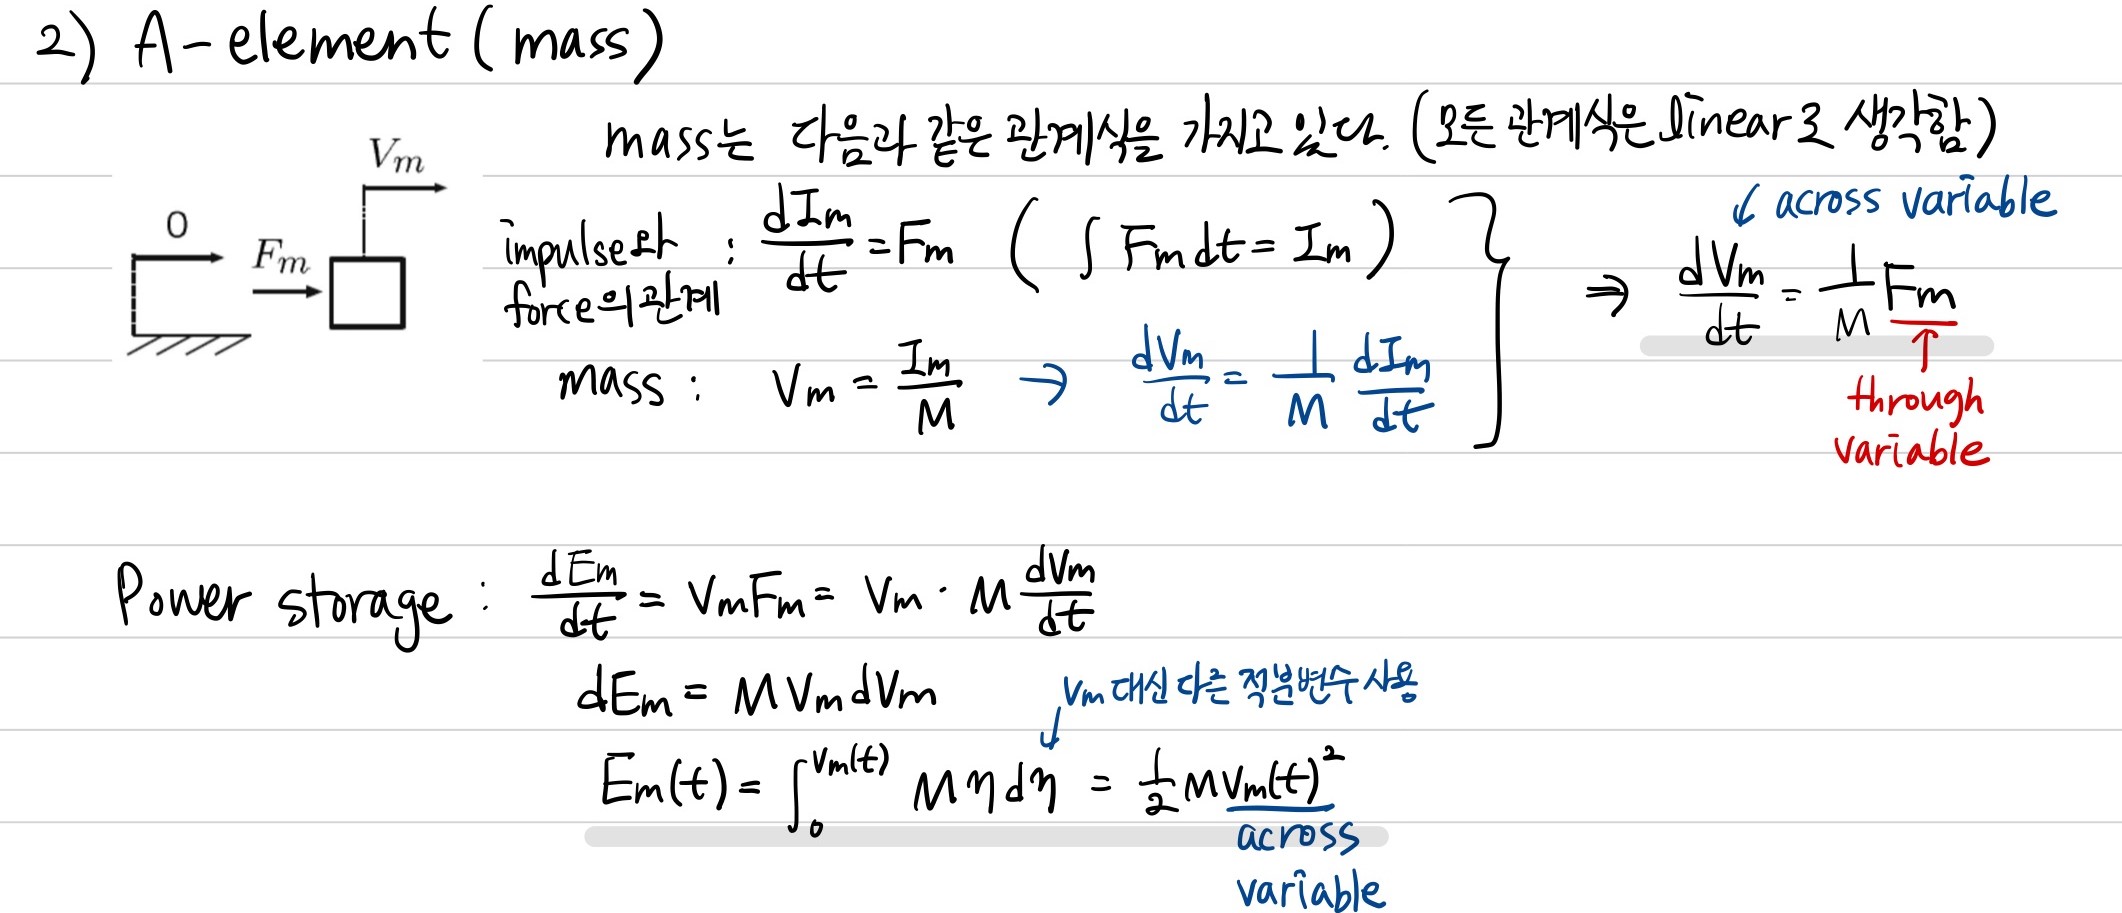 2) A-element (mass)
mass는 다음과 같은 관계식을 가지고 있다. (모든 관계식은 linear로 생각함)
V_m
0
F_m
impulse와 force의 관계 : dI_m/dt = F_m ( ∫ F_m dt = I_m )
mass : V_m = I_m/M → dV_m/dt = 1/M dI_m/dt
⇒ dV_m/dt = 1/M F_m
across variable
through
variable
Power storage : dE_m/dt = V_m F_m = V_m · M dV_m/dt
dE_m = M V_m dV_m
V_m 대신 다른 적분변수 사용
E_m(t) = ∫_0^{V_m(t)} M η dη = 1/2 M V_m(t)^2
across
variable